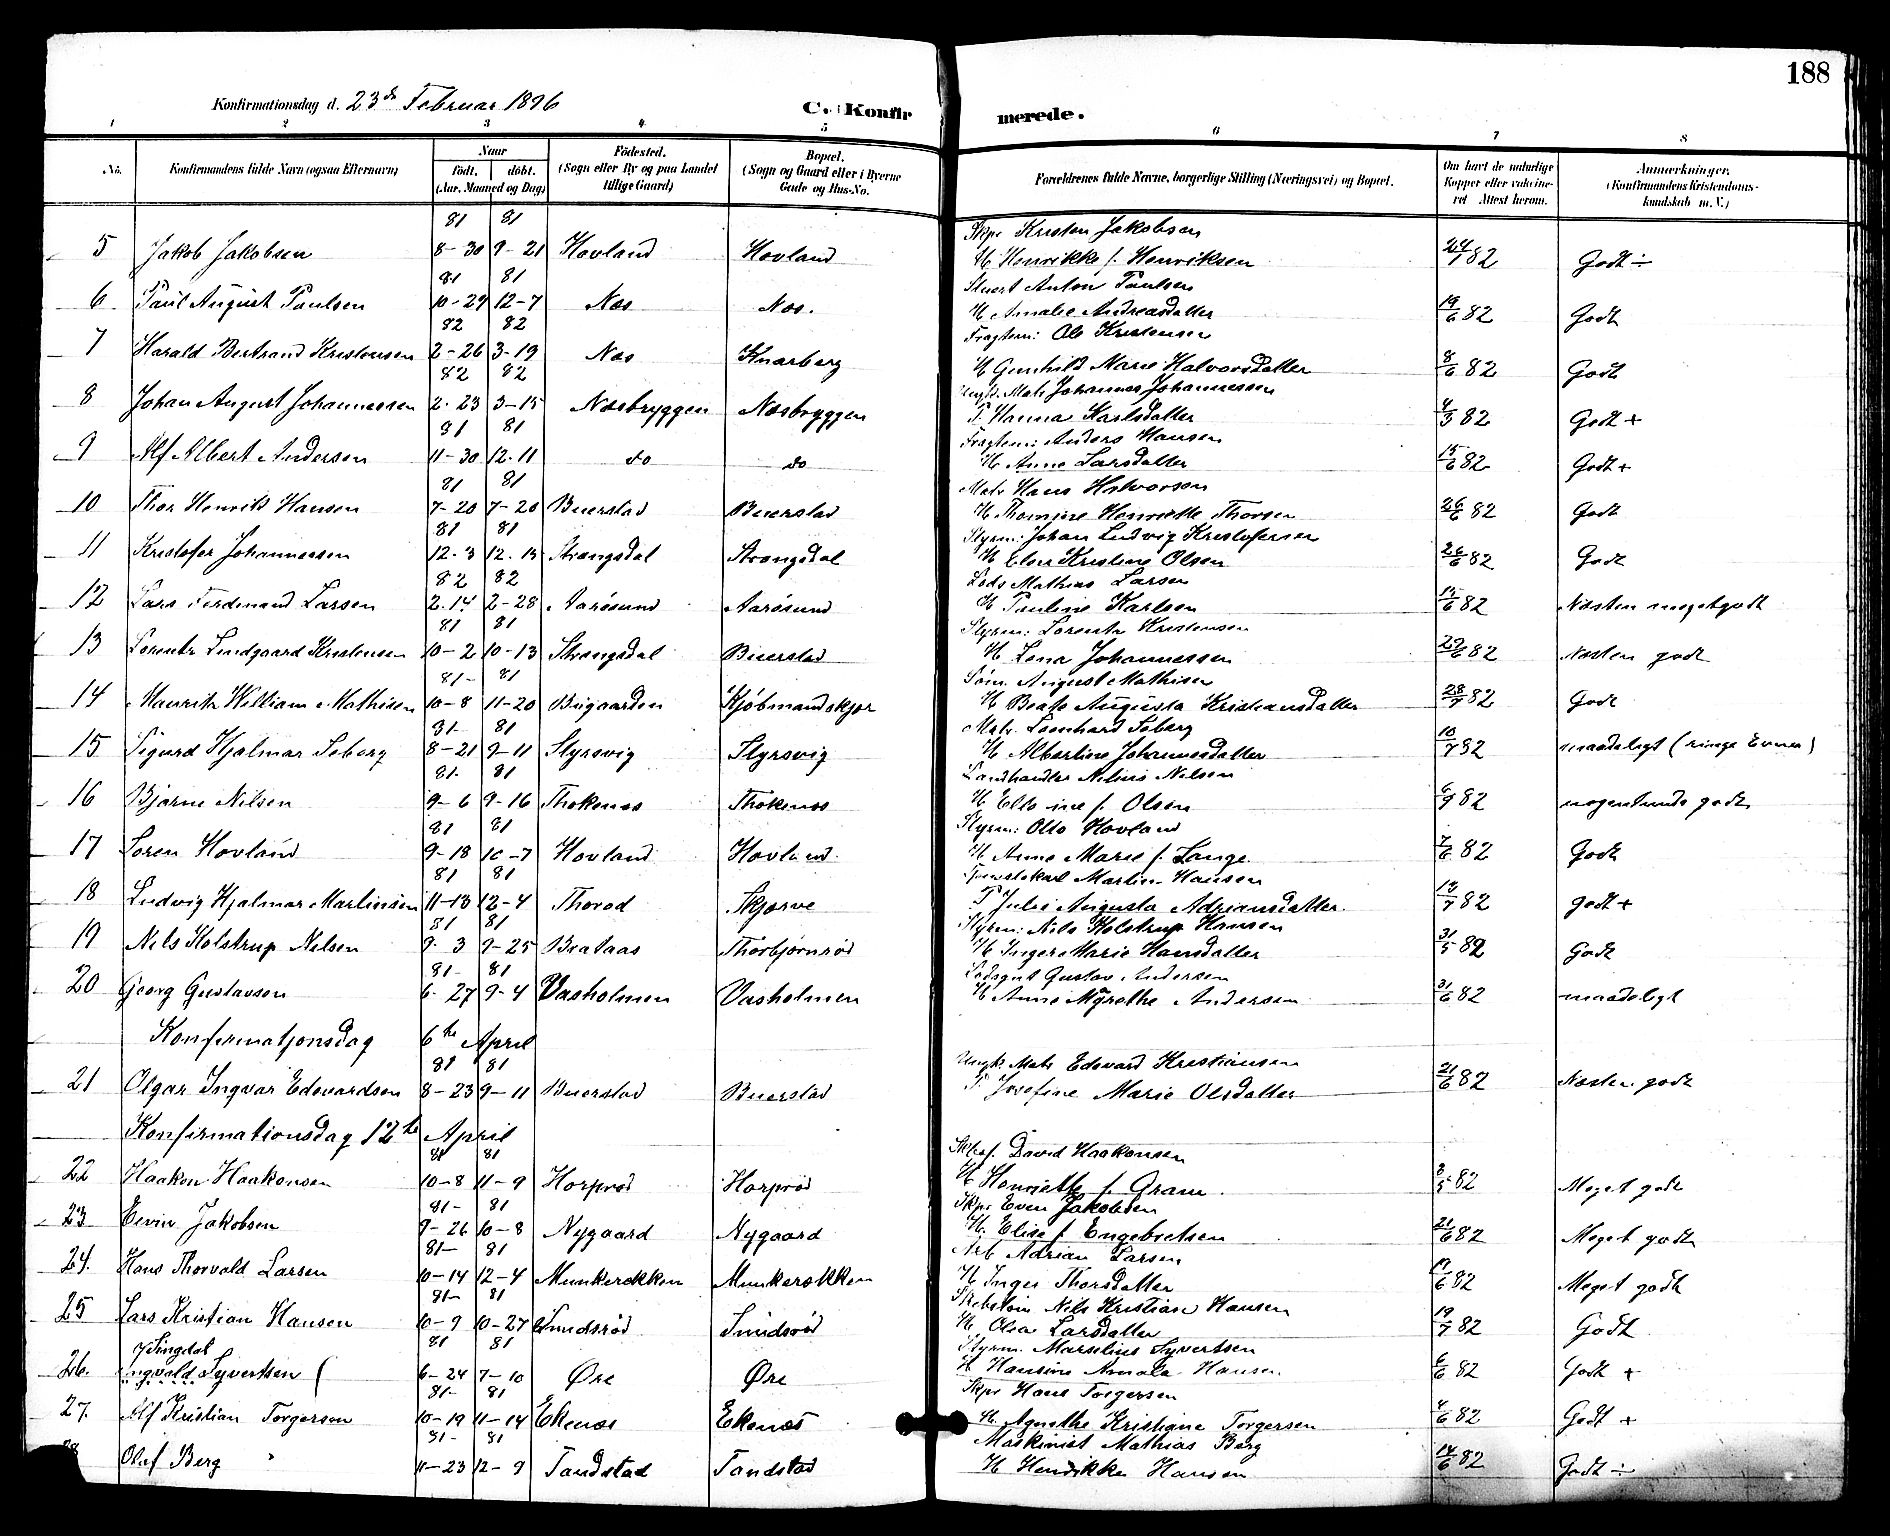 188
Konfirmationsdag d. 23de Februar 1896
C. Konfirmerede.
1 2 3 4 5 6 7 8
No. Konfirmandens fulde Navn (ogsaa Efternavn) Naar født, døbt. (Aar, Maaned og Dag) Fødested. (Sogn eller By og paa Landet tillige Gaard) Bopæl. (Sogn og Gaard eller i Byerne Gade og Hus-No. Forældrenes fulde Navne, borgerlige Stilling (Næringsvei) og Bopæl. Om havt de naturlige Kopper eller vaksineret Attest herom. Anmærkninger. (Konfirmandens Kristendomskundskab m. V.)
81 81 Skpr Kristen Jakobsen
5 Jakob Jakobsen 8-30 9-21 Hovland Hovland H Henrikke f. Henriksen 24/7 82 Godt ÷
81 81 Stuert Anton Paulsen
6. Paul August Paulsen 10-29 12-7 Næs Næs. H Amalie Andreasdatter 19/6 82 Godt
82 82 Fragtem: Ole Kristensen
7 Harald Bertrand Kristensen 2-26 3-19 Næs Knarberg H Gunhild Marie Halvorsdatter 8/6 82 Godt
82 82 Ungk. Matr Johannes Johannessen
8 Johan August Johannessen 2-23 3-15 Næsbryggen Næsbryggen P. Hanna Karlsdatter 4/3 82 Godt +
81 81 Fragtem: Anders Hansen
9 Alf Albert Andersen 11-30 12-11 do do H Anne Larsdatter 15/6 82 Godt +
81 81 Matr Hans Halvorsen
10 Thor Henrik Hansen 7-20 7-20 Buerstad Buerstad H Thomine Henriette Thorsen 26/6 82 Godt
81 81 Styrm: Johan Ludvig Kristofersen
11 Kristofer Johannessen 12-3 12-13 Strængsdal Strængsdal H Elen Kristine Olsen 26/6 82 Godt
82 82 Lods Mathias Larsen
12 Lars Ferdinand Larsen 2-14 2-28 Aarøsund Aarøsund H Pauline Karlsen 15/6 82 Næsten meget godt
81 81 Styrm: Lorentz Kristensen
13 Lorentz Lindgaard Kristensen 10-2 10-13 Strængsdal Buerstad H Lena Johannessen 29/6 82 Næsten godt
81- 81 Søm. August Mathisen
14 Mauritz William Mathisen 10-8 11-20 Bugaarden Kjøbmandskjær H Beate Augusta Kristiansdatter 28/7 82 Godt
81 81 Matr. Leonhard Seberg
15 Sigurd Hjalmar Seberg 8-21 9-11 Styrsvig Styrsvig H Albertine Johannesdatter 10/7 82 maadeligt (ringe Evner)
81- 81 Landhandler Nilius Nilsen
16 Bjarne Nilsen 9-6 9-16 Thokenæs Thokenæs H Elle ine f. Olsen 6/9 82 nogenlunde godt
81 81 Styrm: Otto Hovland
17 Søren Hovland 9-18 10-7 Hovland Hovland. H Anne Marie f. Lange 7/6 82 Godt
81 81 Tjenestekarl Martin Hansen
18 Ludvig Hjalmar Martinsen 11-13 12-4 Thorød Skjærve P Julie Augusta Adriansdatter. 13/7 82 godt +
81 81 Styrm: Nils Holstrup Hansen
19 Nils Holstrup Nilsen 9-3 9-25 Brataas Thorbjørnrød H Inger Marie Hansdatter 31/5 82 Godt
81- 81 Lodsgut Gustav Andersen
20 Georg Gustavsen 6-27 9-4 Vasholmen Vasholmen H Anne Margrethe Andersen 31/6 82 maadeligt
Konfirmatjonsdag 6te April
81 81 Ungk. Matr Edevard Kristiansen
21 Olgar Ingvar Edevardsen 8-23 9-11 Buerstad Buerstad P Josefine Marie Olsdatter 21/6 82 Næsten godt
Konfirmationsdag 12te April
81 81 David Haakonsen
22 Haakon Haakonsen 10-8 11-9 Horprød Horprød H Henriette f. Gram. 3/5 82 Meget godt
81- 81 Skpr Even Jakobsen
23 Eivin Jakobsen 9-26 10-8 Nygaard Nygaard H. Elise f Engebretsen 21/6 82 Meget godt
81- 81 Arb Adrian Larsen
24. Hans Thorvald Larsen 10-14 12-4 Munkerekken Munkerekken H Inger Thorsdatter 17/6 82 Meget godt
81- 81 Nils Kristian Hansen
25 Lars Kristian Hansen 10-9 10-27 Smidsrød Smidsrød H Olea Larsdatter 19/7 82 Godt
Singdal 81 81 Styrm. Marselius Syvertsen
26. Ingvald Syvertsen ( 6-24 7-10 Øre Øre H Hansine Amala Hansen. 6/6 82 Godt +
81- 81 Skpr Hans Torgersen
27. Alf Kristian Torgersen 10-19 11-14 Ekenæs Ekenæs H. Agnethe Kristiane Torgersen 4/6 82 Godt +
81- 81 Maskinist Mathias Berg
28 Olaf Berg 11-23 12-9 Tandstad Tandstad H Henrikke Hansen 14/6 82 Godt ÷